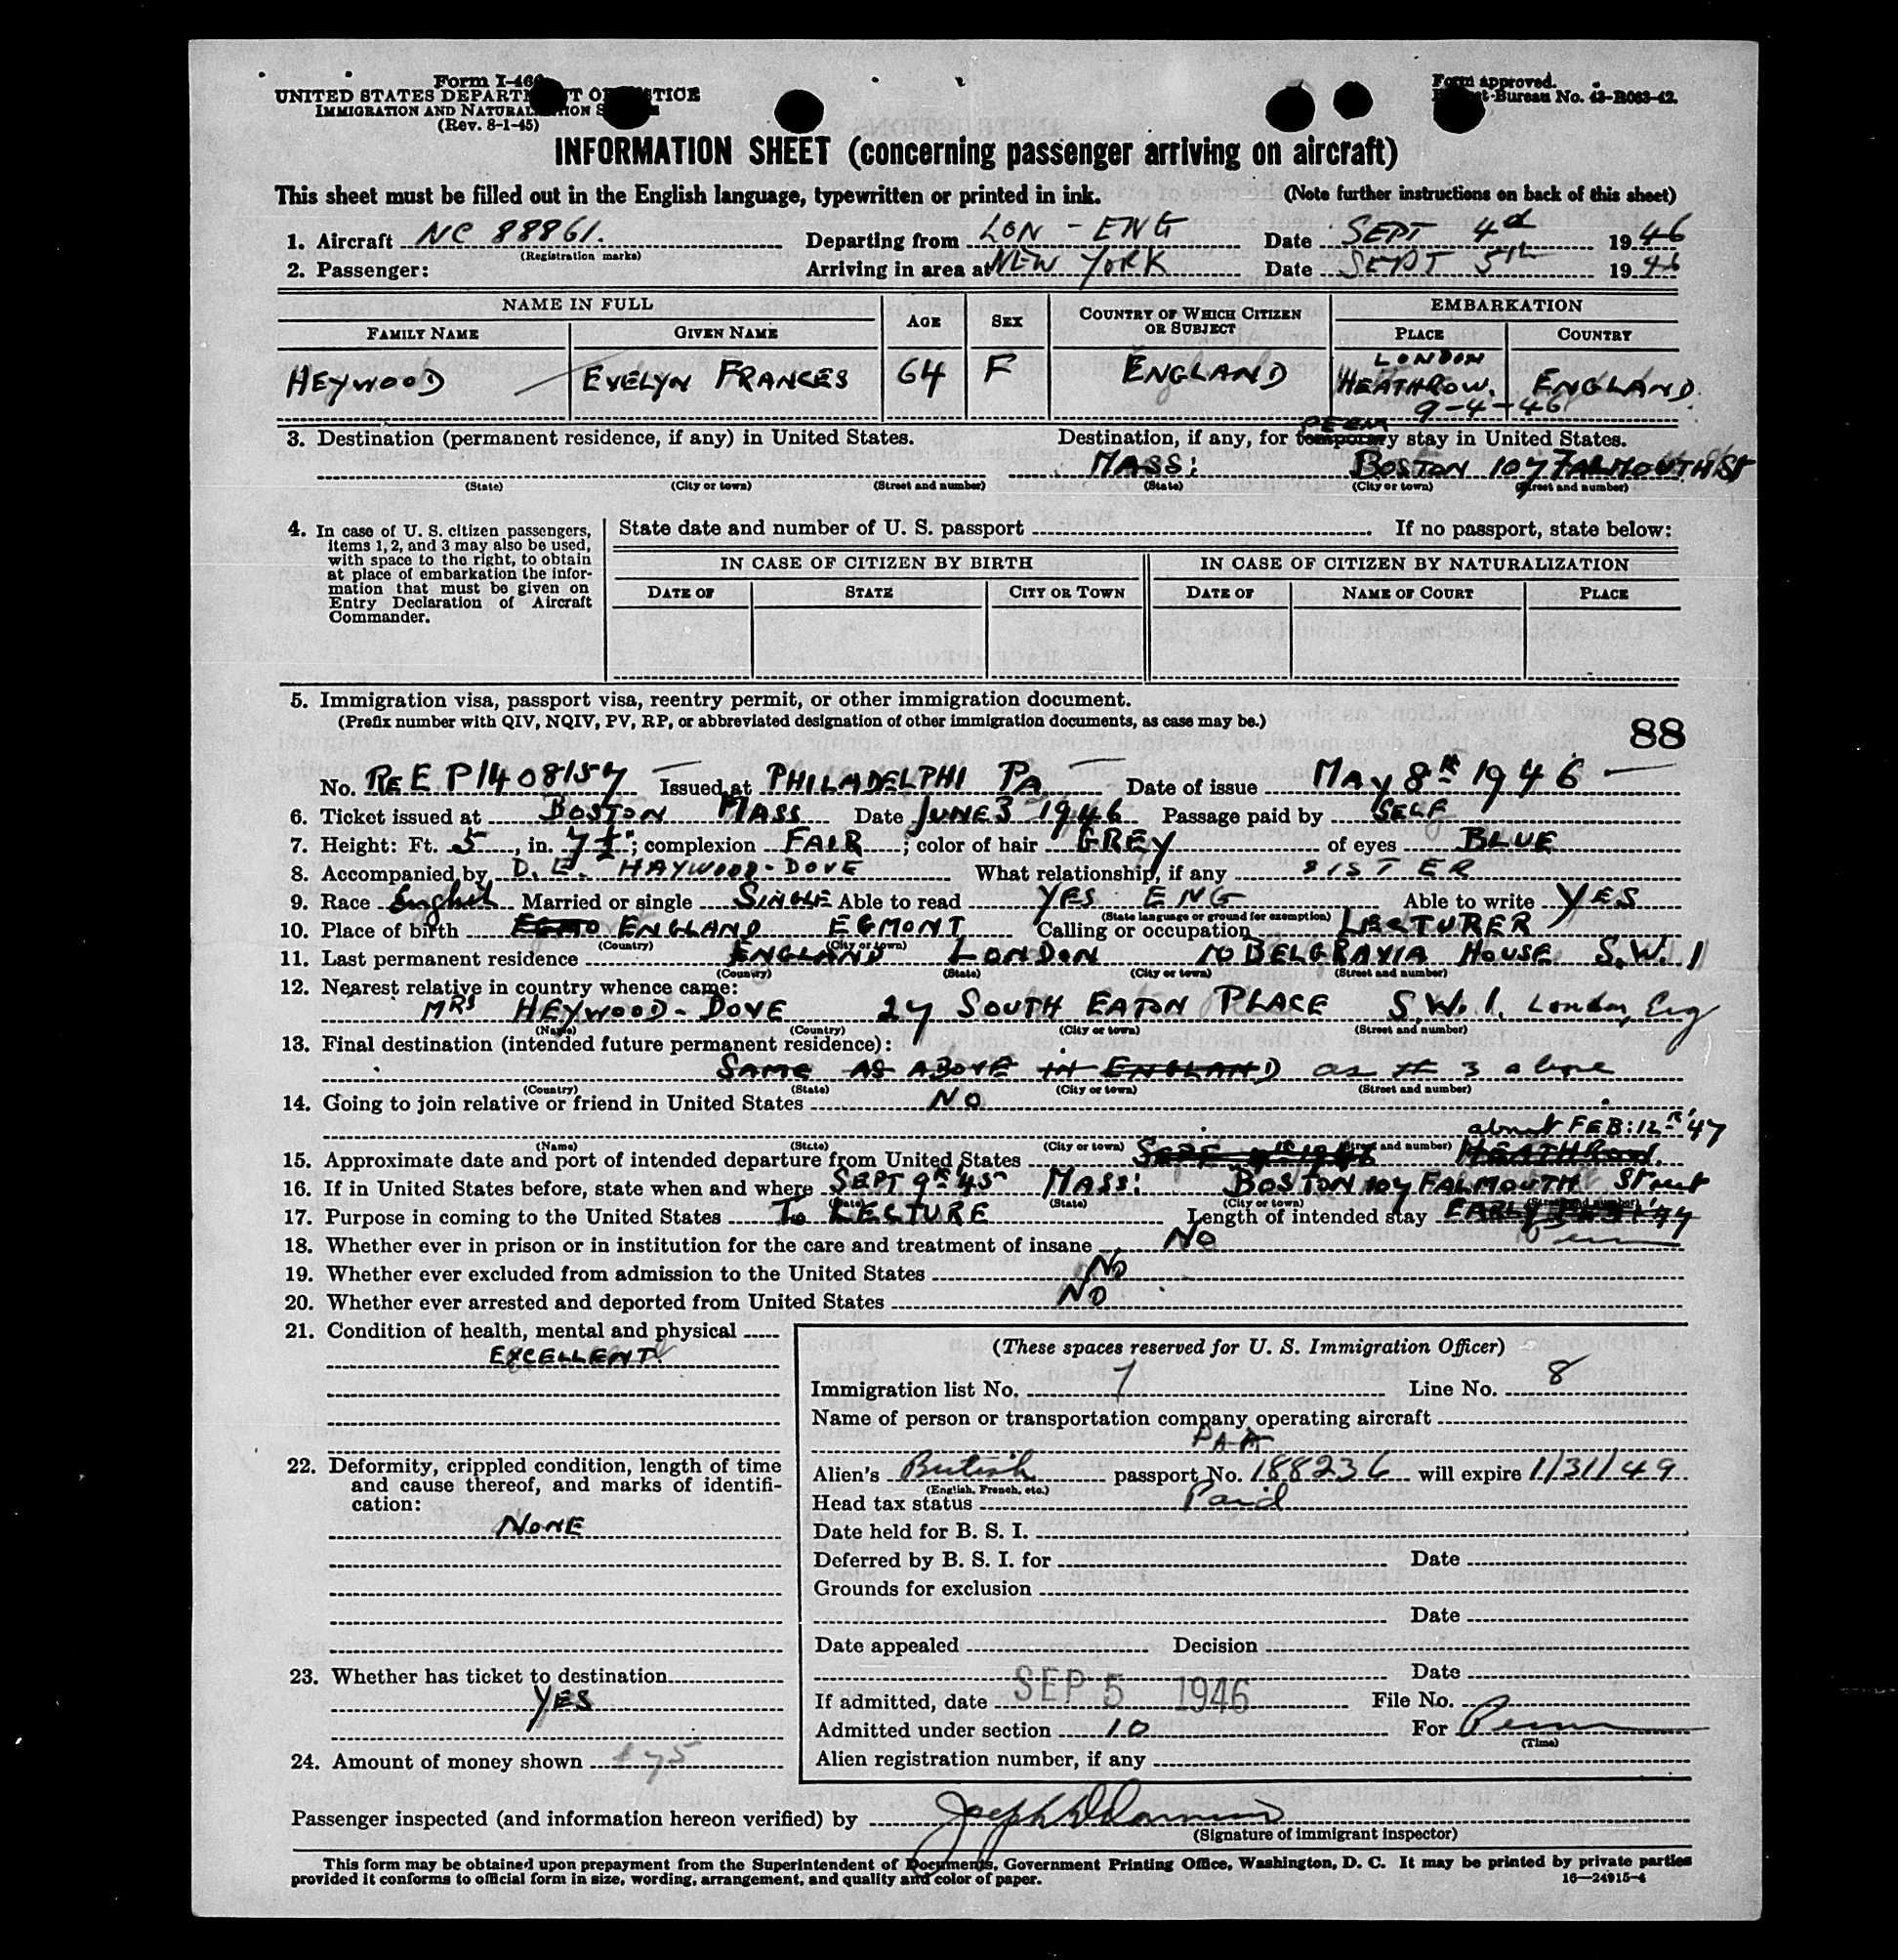 Form I-466
UNITED STATES DEPARTMENT OF JUSTICE
IMMIGRATION AND NATURALIZATION
(Rev. 8-1-45)
Form approved.
Bureau No. 43-R063-42.
INFORMATION SHEET (concerning passenger arriving on aircraft)
This sheet must be filled out in the English language, typewritten or printed in ink. (Note further instructions on back of this sheet)
1. Aircraft NC 88861. Departing from LON - ENG Date SEPT 4d 1946
(Registration marks)
2. Passenger: Arriving in area at NEW YORK Date SEPT 5th 1946
NAME IN FULL AGE SEX COUNTRY OF WHICH CITIZEN OR SUBJECT EMBARKATION
FAMILY NAME GIVEN NAME PLACE COUNTRY
HEYWOOD EVELYN FRANCES 64 F ENGLAND LONDON HEATHROW. ENGLAND
9-4-46
3. Destination (permanent residence, if any) in United States. Destination, if any, for temporary stay in United States.
PERM
MASS: BOSTON 107 FALMOUTH St
(State) (City or town) (Street and number) (State) (City or town) (Street and number)
4. In case of U. S. citizen passengers, items 1, 2, and 3 may also be used, with space to the right, to obtain at place of embarkation the information that must be given on Entry Declaration of Aircraft Commander.
State date and number of U. S. passport If no passport, state below:
IN CASE OF CITIZEN BY BIRTH IN CASE OF CITIZEN BY NATURALIZATION
DATE OF STATE CITY OR TOWN DATE OF NAME OF COURT PLACE
5. Immigration visa, passport visa, reentry permit, or other immigration document.
(Prefix number with QIV, NQIV, PV, RP, or abbreviated designation of other immigration documents, as case may be.)
88
No. REE P1408157 Issued at PHILADELPHI PA Date of issue MAY 8th 1946
6. Ticket issued at BOSTON MASS Date JUNE 3 1946 Passage paid by SELF
7. Height: Ft. 5, in. 7½; complexion FAIR; color of hair GREY of eyes BLUE
8. Accompanied by D. E. HAYWOOD-DOVE What relationship, if any SISTER
9. Race English Married or single SINGLE Able to read YES ENG Able to write YES
(State language or ground for exemption)
10. Place of birth ENGLAND EGMONT Calling or occupation LECTURER
(Country) (City or town)
11. Last permanent residence ENGLAND LONDON 10 BELGRAVIA HOUSE S.W. 1
(Country) (State) (City or town) (Street and number)
12. Nearest relative in country whence came:
MRS HEYWOOD-DOVE 27 SOUTH EATON PLACE S.W.1. London, Eng
(Name) (Country) (City or town) (Street and number)
13. Final destination (intended future permanent residence):
SAME AS ABOVE IN ENGLAND as # 3 above
(Country) (State) (City or town) (Street and number)
14. Going to join relative or friend in United States NO
about FEB: 12th '47
(Name) (State) (City or town) (Street and number)
15. Approximate date and port of intended departure from United States HEATHROW.
16. If in United States before, state when and where SEPT 9th 45 MASS: BOSTON 107 FALMOUTH Street
(Date) (State) (City or town) (Street and number)
17. Purpose in coming to the United States To LECTURE Length of intended stay
Perm
18. Whether ever in prison or in institution for the care and treatment of insane NO
19. Whether ever excluded from admission to the United States NO
20. Whether ever arrested and deported from United States NO
21. Condition of health, mental and physical
EXCELLENT.
22. Deformity, crippled condition, length of time and cause thereof, and marks of identification:
NONE
23. Whether has ticket to destination
YES
24. Amount of money shown 75
(These spaces reserved for U. S. Immigration Officer)
Immigration list No. 7 Line No. 8
Name of person or transportation company operating aircraft
PAA
Alien's British passport No. 188236 will expire 1/31/49
(English, French, etc.)
Head tax status Paid
Date held for B. S. I.
Deferred by B. S. I. for Date
Grounds for exclusion
Date
Date appealed Decision
Date
If admitted, date SEP 5 1946 File No.
Admitted under section 10 For Perm
(Time)
Alien registration number, if any
Passenger inspected (and information hereon verified) by Joseph
(Signature of immigrant inspector)
This form may be obtained upon prepayment from the Superintendent of Documents, Government Printing Office, Washington, D. C. It may be printed by private parties
provided it conforms to official form in size, wording, arrangement, and quality and color of paper.
16—24915-4